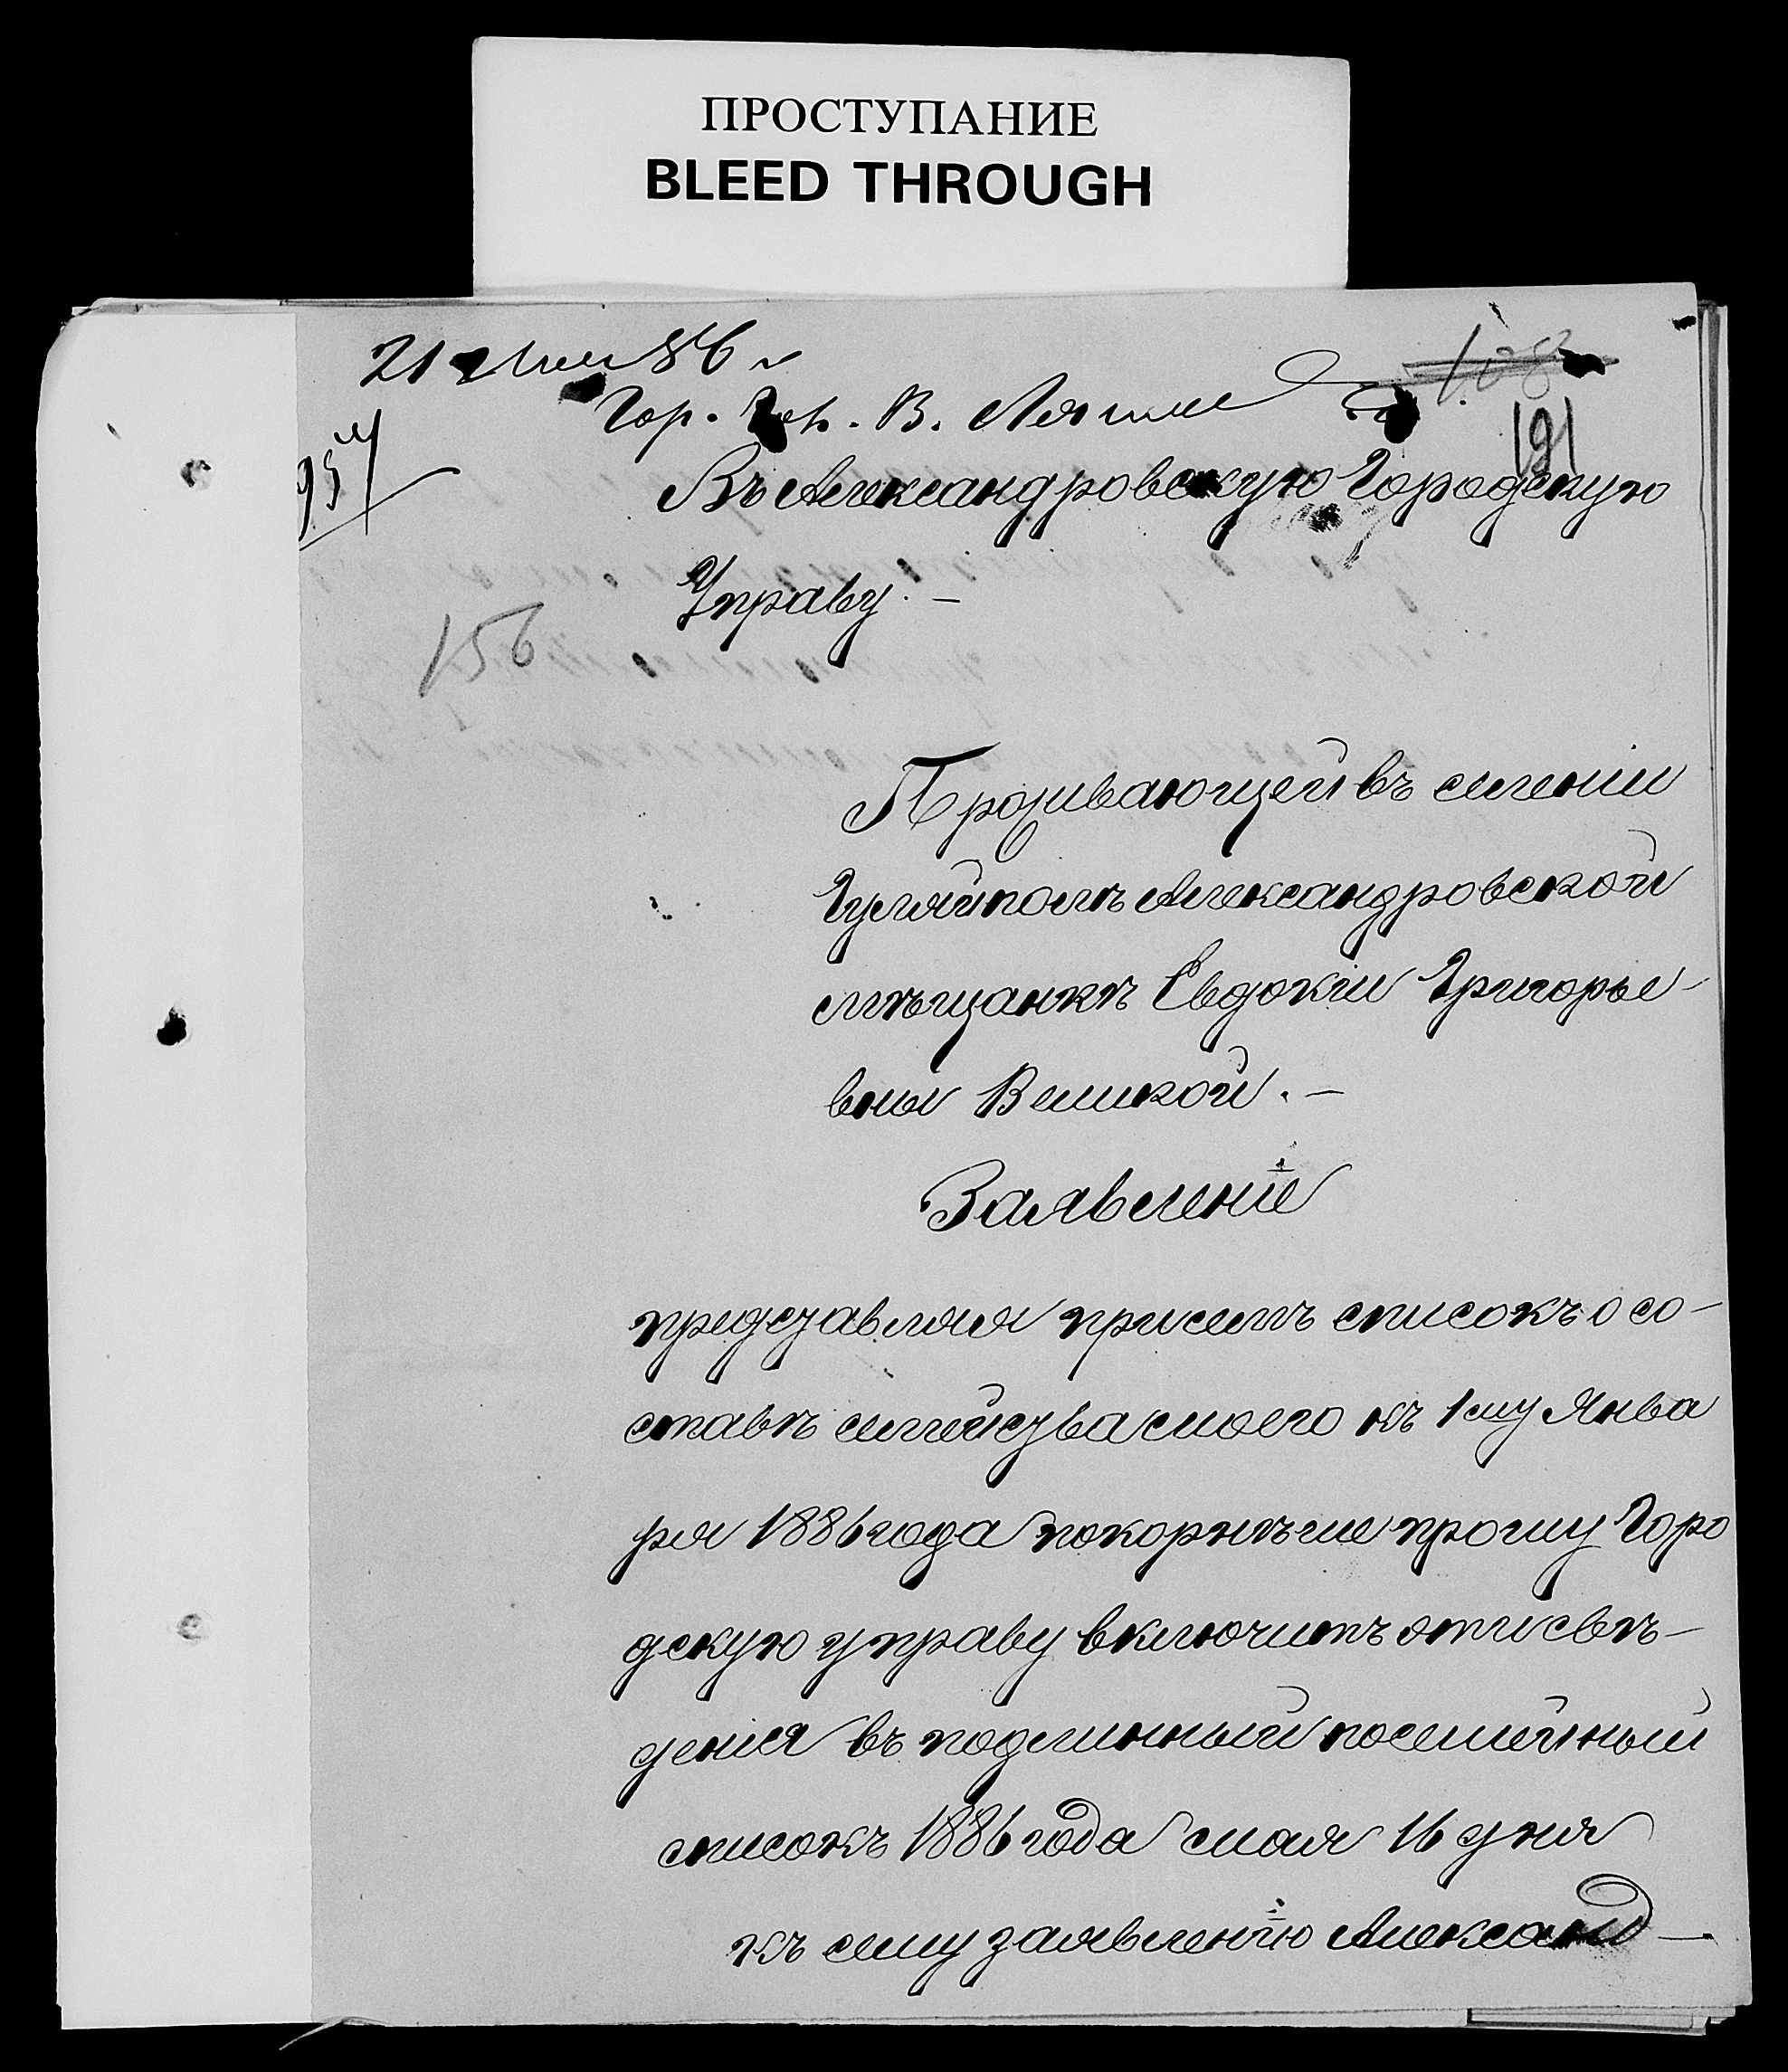 ПРОСТУПАНИЕ
BLEED THROUGH
21 86
108
Гор. В.
191
957
Въ Александровскую Городскую
Управу. –
156
Проживающей въ селении
Гуляйполѣ Александровской
мѣщанкѣ Евдокіи Григорье-
вны Великой. –
Заявленіе
представляя присемъ списокъ о со-
ставѣ семейства моего къ 1му Янва
ря 1886 года покорнѣше прошу Горо
дскую управу включить эти свѣ-
денія въ подлинный посемейный
списокъ 1886 года мая 16 дня
къ сему заявленію Александ-